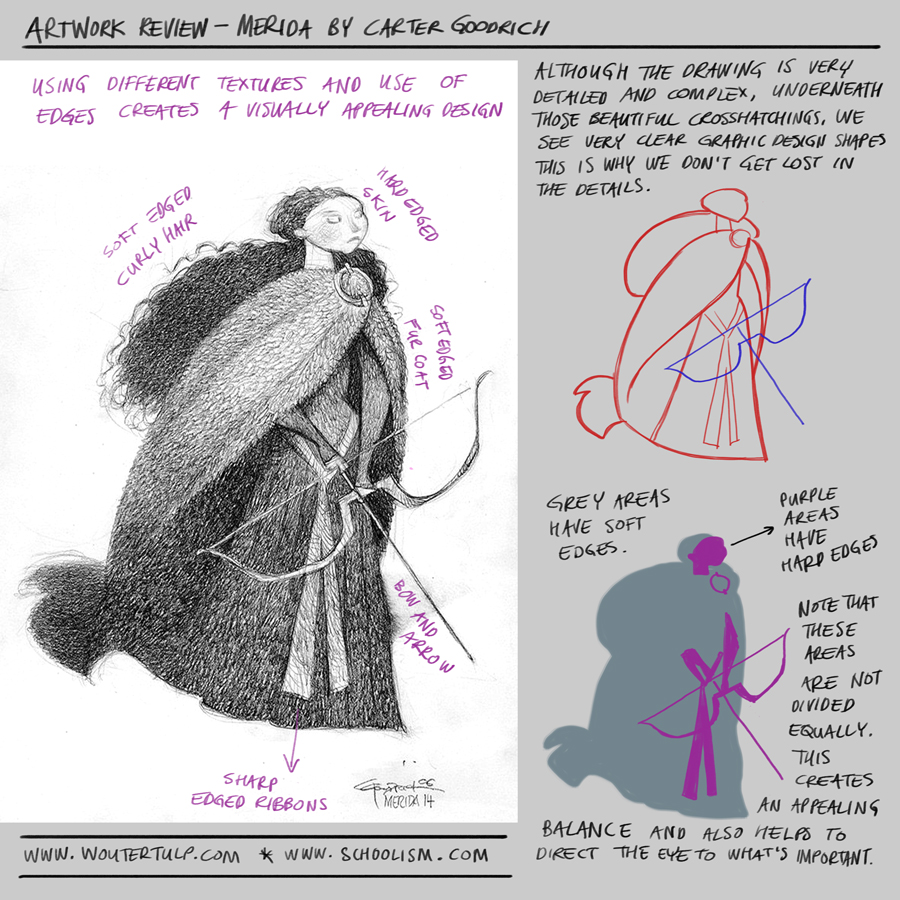 ARTWORK REVIEW – MERIDA BY CARTER GOODRICH
USING DIFFERENT TEXTURES AND USE OF
EDGES CREATES A VISUALLY APPEALING DESIGN
SOFT EDGED
CURLY HAIR
HARD EDGED
SKIN
SOFT EDGED
FUR COAT
BOW AND
ARROW
SHARP
EDGED RIBBONS
MERIDA 14
ALTHOUGH THE DRAWING IS VERY
DETAILED AND COMPLEX, UNDERNEATH
THOSE BEAUTIFUL CROSSHATCHINGS, WE
SEE VERY CLEAR GRAPHIC DESIGN SHAPES
THIS IS WHY WE DON'T GET LOST IN
THE DETAILS.
GREY AREAS
HAVE SOFT
EDGES.
PURPLE
AREAS
HAVE
HARD EDGES
NOTE THAT
THESE
AREAS
ARE NOT
DIVIDED
EQUALLY.
THIS
CREATES
AN APPEALING
BALANCE AND ALSO HELPS TO
DIRECT THE EYE TO WHAT'S IMPORTANT.
WWW.WOUTERTULP.COM * WWW.SCHOOLISM.COM